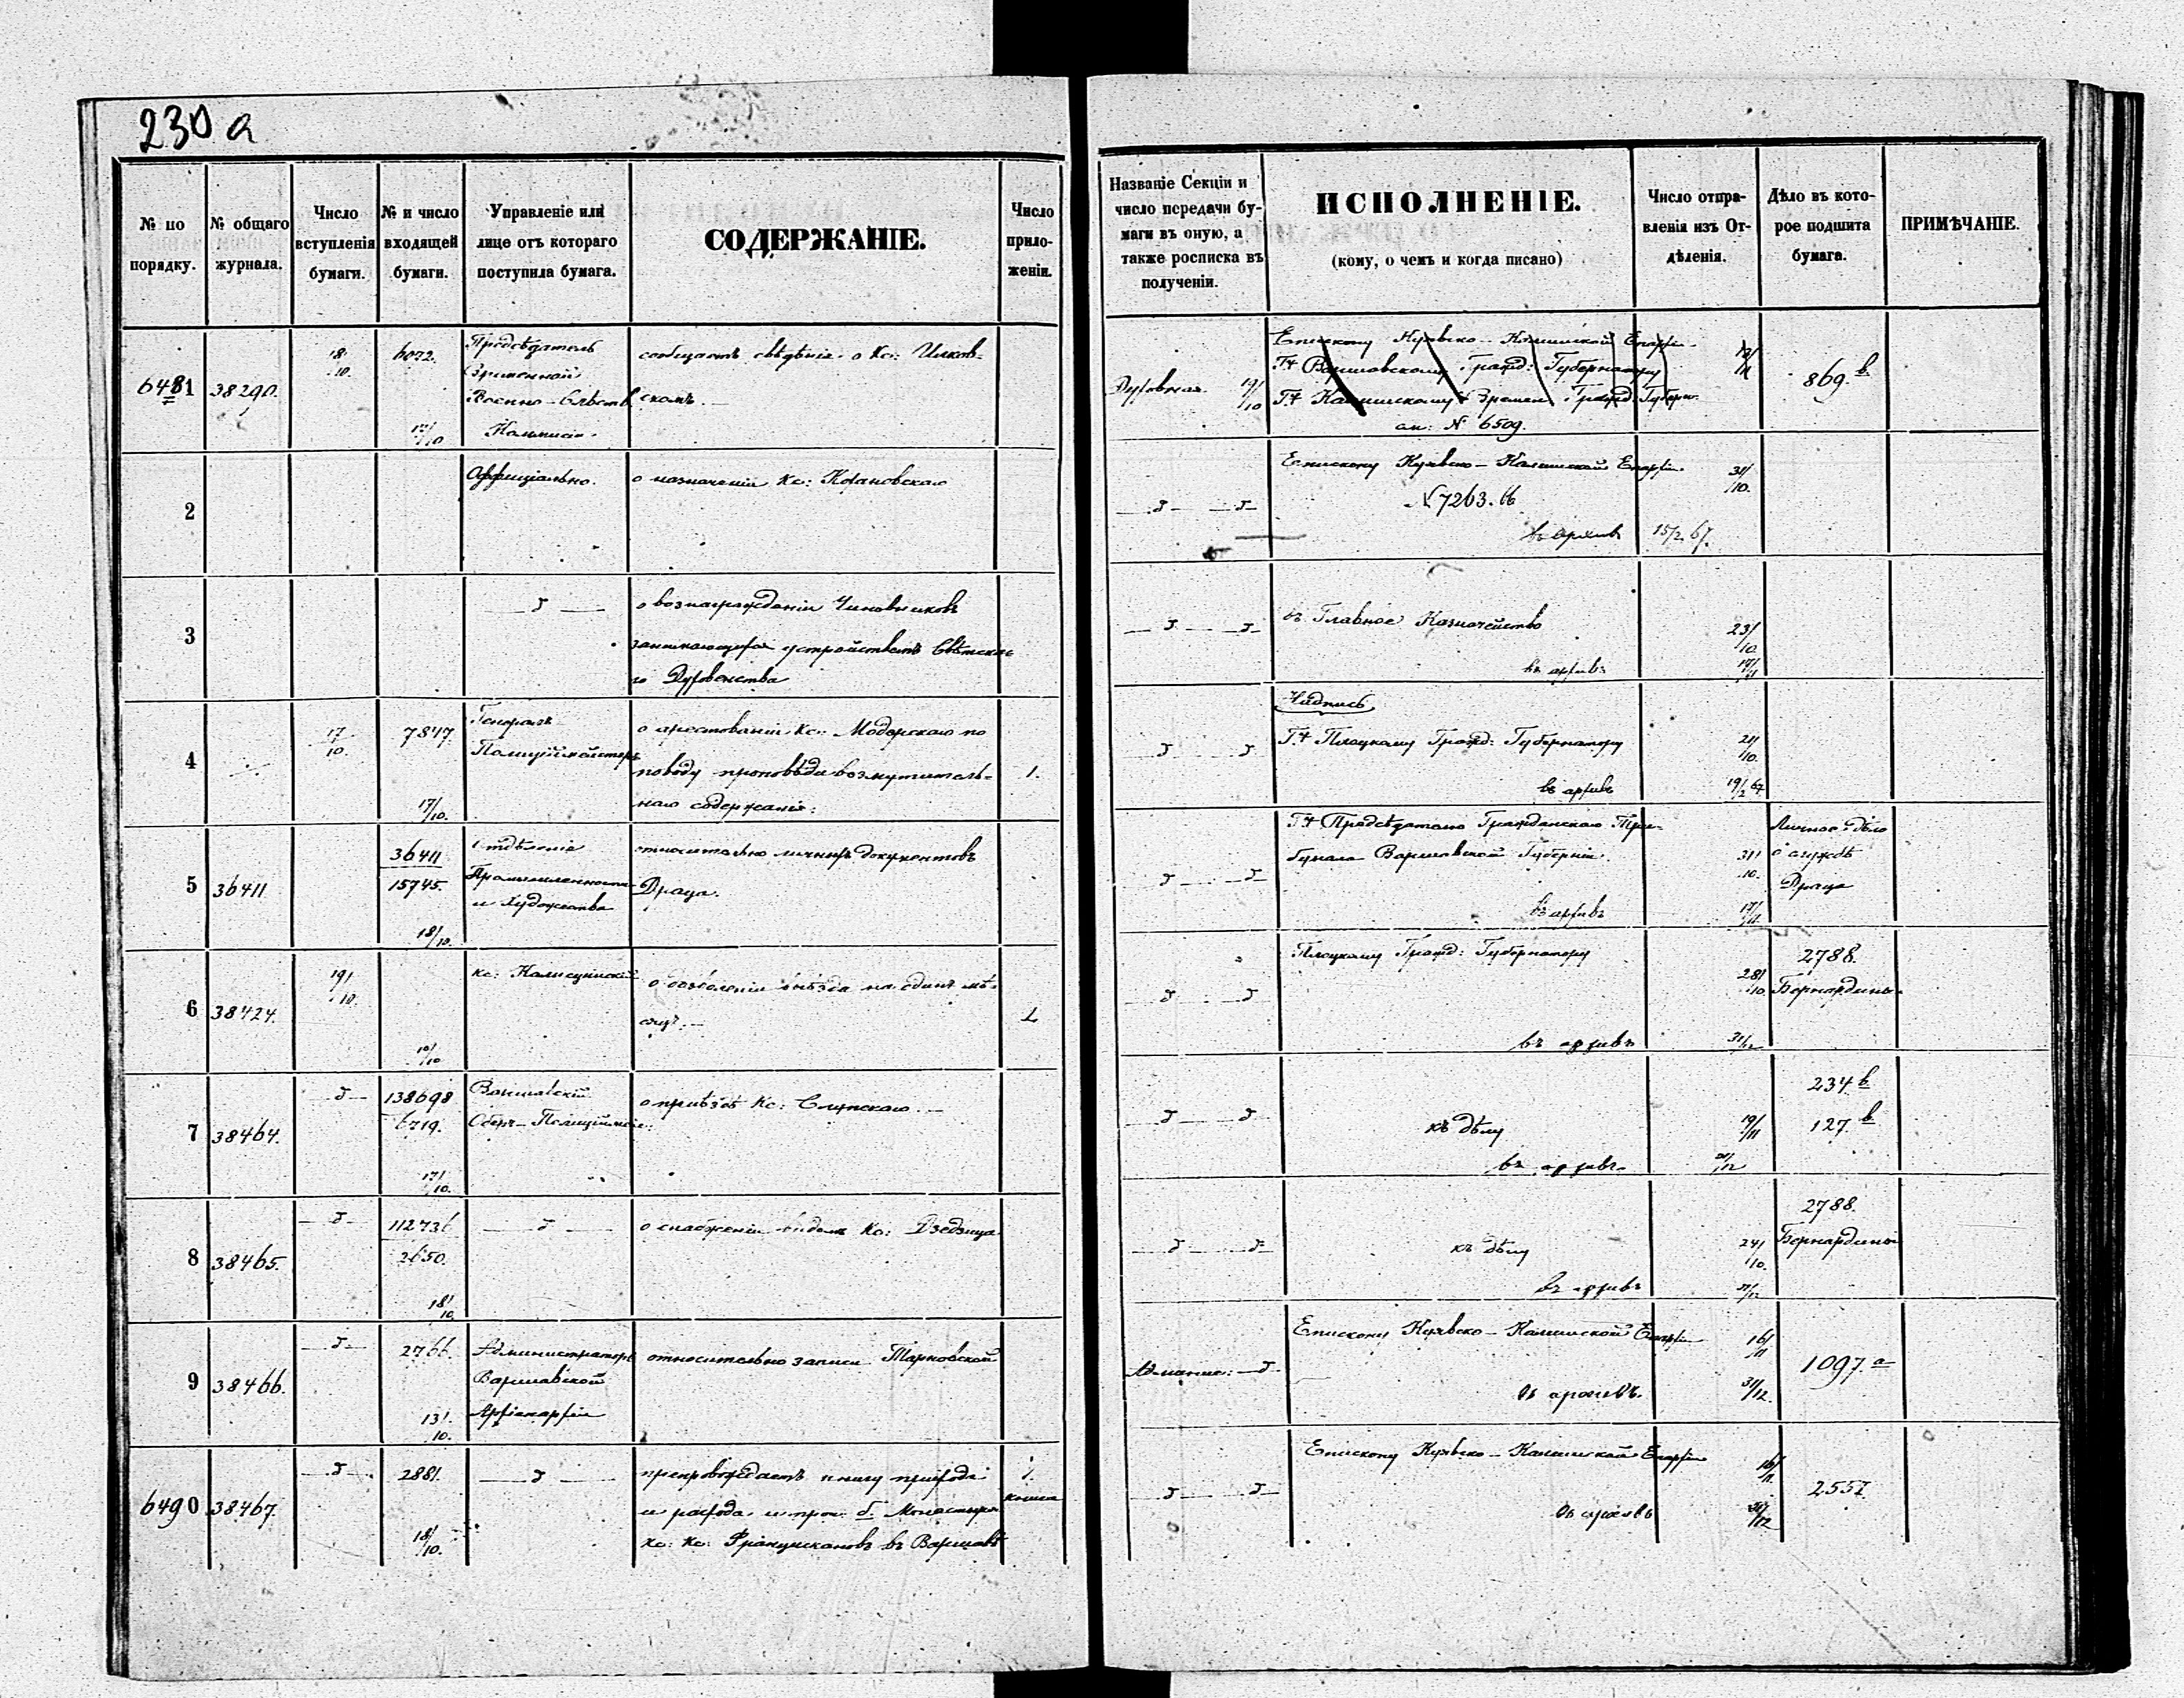 230 а
№ по порядку.
№ общаго журнала.
Число вступленія бумаги.
№ и число входящей бумаги.
Управленіе или лице отъ котораго поступила бумага.
СОДЕРЖАНІЕ.
Число приложеніи.
Названіе Секціи и число передачи бумаги въ оную, а также росписка въ полученіи.
ИСПОЛНЕНІЕ.
(кому, о чемъ и когда писано)
Число отправленія изъ Отдѣленія.
Дѣло въ которое подшита бумага.
ПРИМѢЧАНІЕ.
6481 38290. 18/10. 6072. 17/10
Предсѣдатель
Временной
Военно-Слѣдств
Коммисіи.
сообщаетъ свѣдѣнія о Кс:
Духовная 19/10
Епископу Куявско-Калишской Епархіи
Г+ Варшавскому Гражд: Губернатору
Г+ Калишскому Времен. Гражд: Губерн.
ан: № 6509.
869. в.
2
Оффиціально.
о назначеніи Кс:
Епископу Куявско-Калишской Епархіи 31/10.
№ 7263.66
въ архивъ 15/2 67.
3
о вознагражденіи Чиновниковъ
занимающихся устройствомъ Свѣтска-
го Духовенства
въ Главное Казначейство 23/10.
въ архивъ
4 17/10. 7847. 17/10.
Генералъ
Полиціймейстеръ
о арестованіи Кс: Модерскаго по
поводу проповѣди возмутитель-
наго содержанія: 1.
Надпись
Г.+ Плоцкому Гражд: Губернатору 21/10.
въ архивъ 19/2 67
5 36411 36411 15745. 18/10.
Отдѣленіе
Промышленности
и Художества
относительно личныхъ документовъ
Драца.
Г+ Предсѣдателю Гражданскаго Три-
бунала Варшавской Губерніи. 31/10.
въ архивъ 17/11.
Личное дѣло
о службѣ
Драца
6 38424. 19/10.
Кс:
о дозволеніи выѣзда на одинъ мѣ-
сяцъ. — 1
Плоцкому Гражд: Губернатору 28/10.
въ архивъ 31/12
2788.
Бернардины.
7 38464. 138698 6719. 17/10.
Варшавскій
Оберъ-Полиціймей:
о пріѣздѣ Кс: Слупскаго. —
къ дѣлу 19/11
въ архивъ
234 в.
127. в.
8 38465. 112736 2650. 18/10.
о снабженіи видомъ Кс:
къ дѣлу 24/10.
въ архивъ 31/12
2788.
Бернардины
9 38466. 2766. 13/10.
Администраторъ
Варшавской
Архіепархіи
относительно записи Тарновской
Епископу Куявско-Калишской Епархіи 16/11
въ архивъ. 31/12.
1097. а
6490 38467. 2881. 18/10.
препровождаетъ книгу прихода
и расхода и проч. б. Монастыря
Кс: Кс: Францискановъ въ Варшавѣ
1. книга
Епископу Куявско-Калишской Епархіи 16/11.
въ архивъ 31/12
2557.